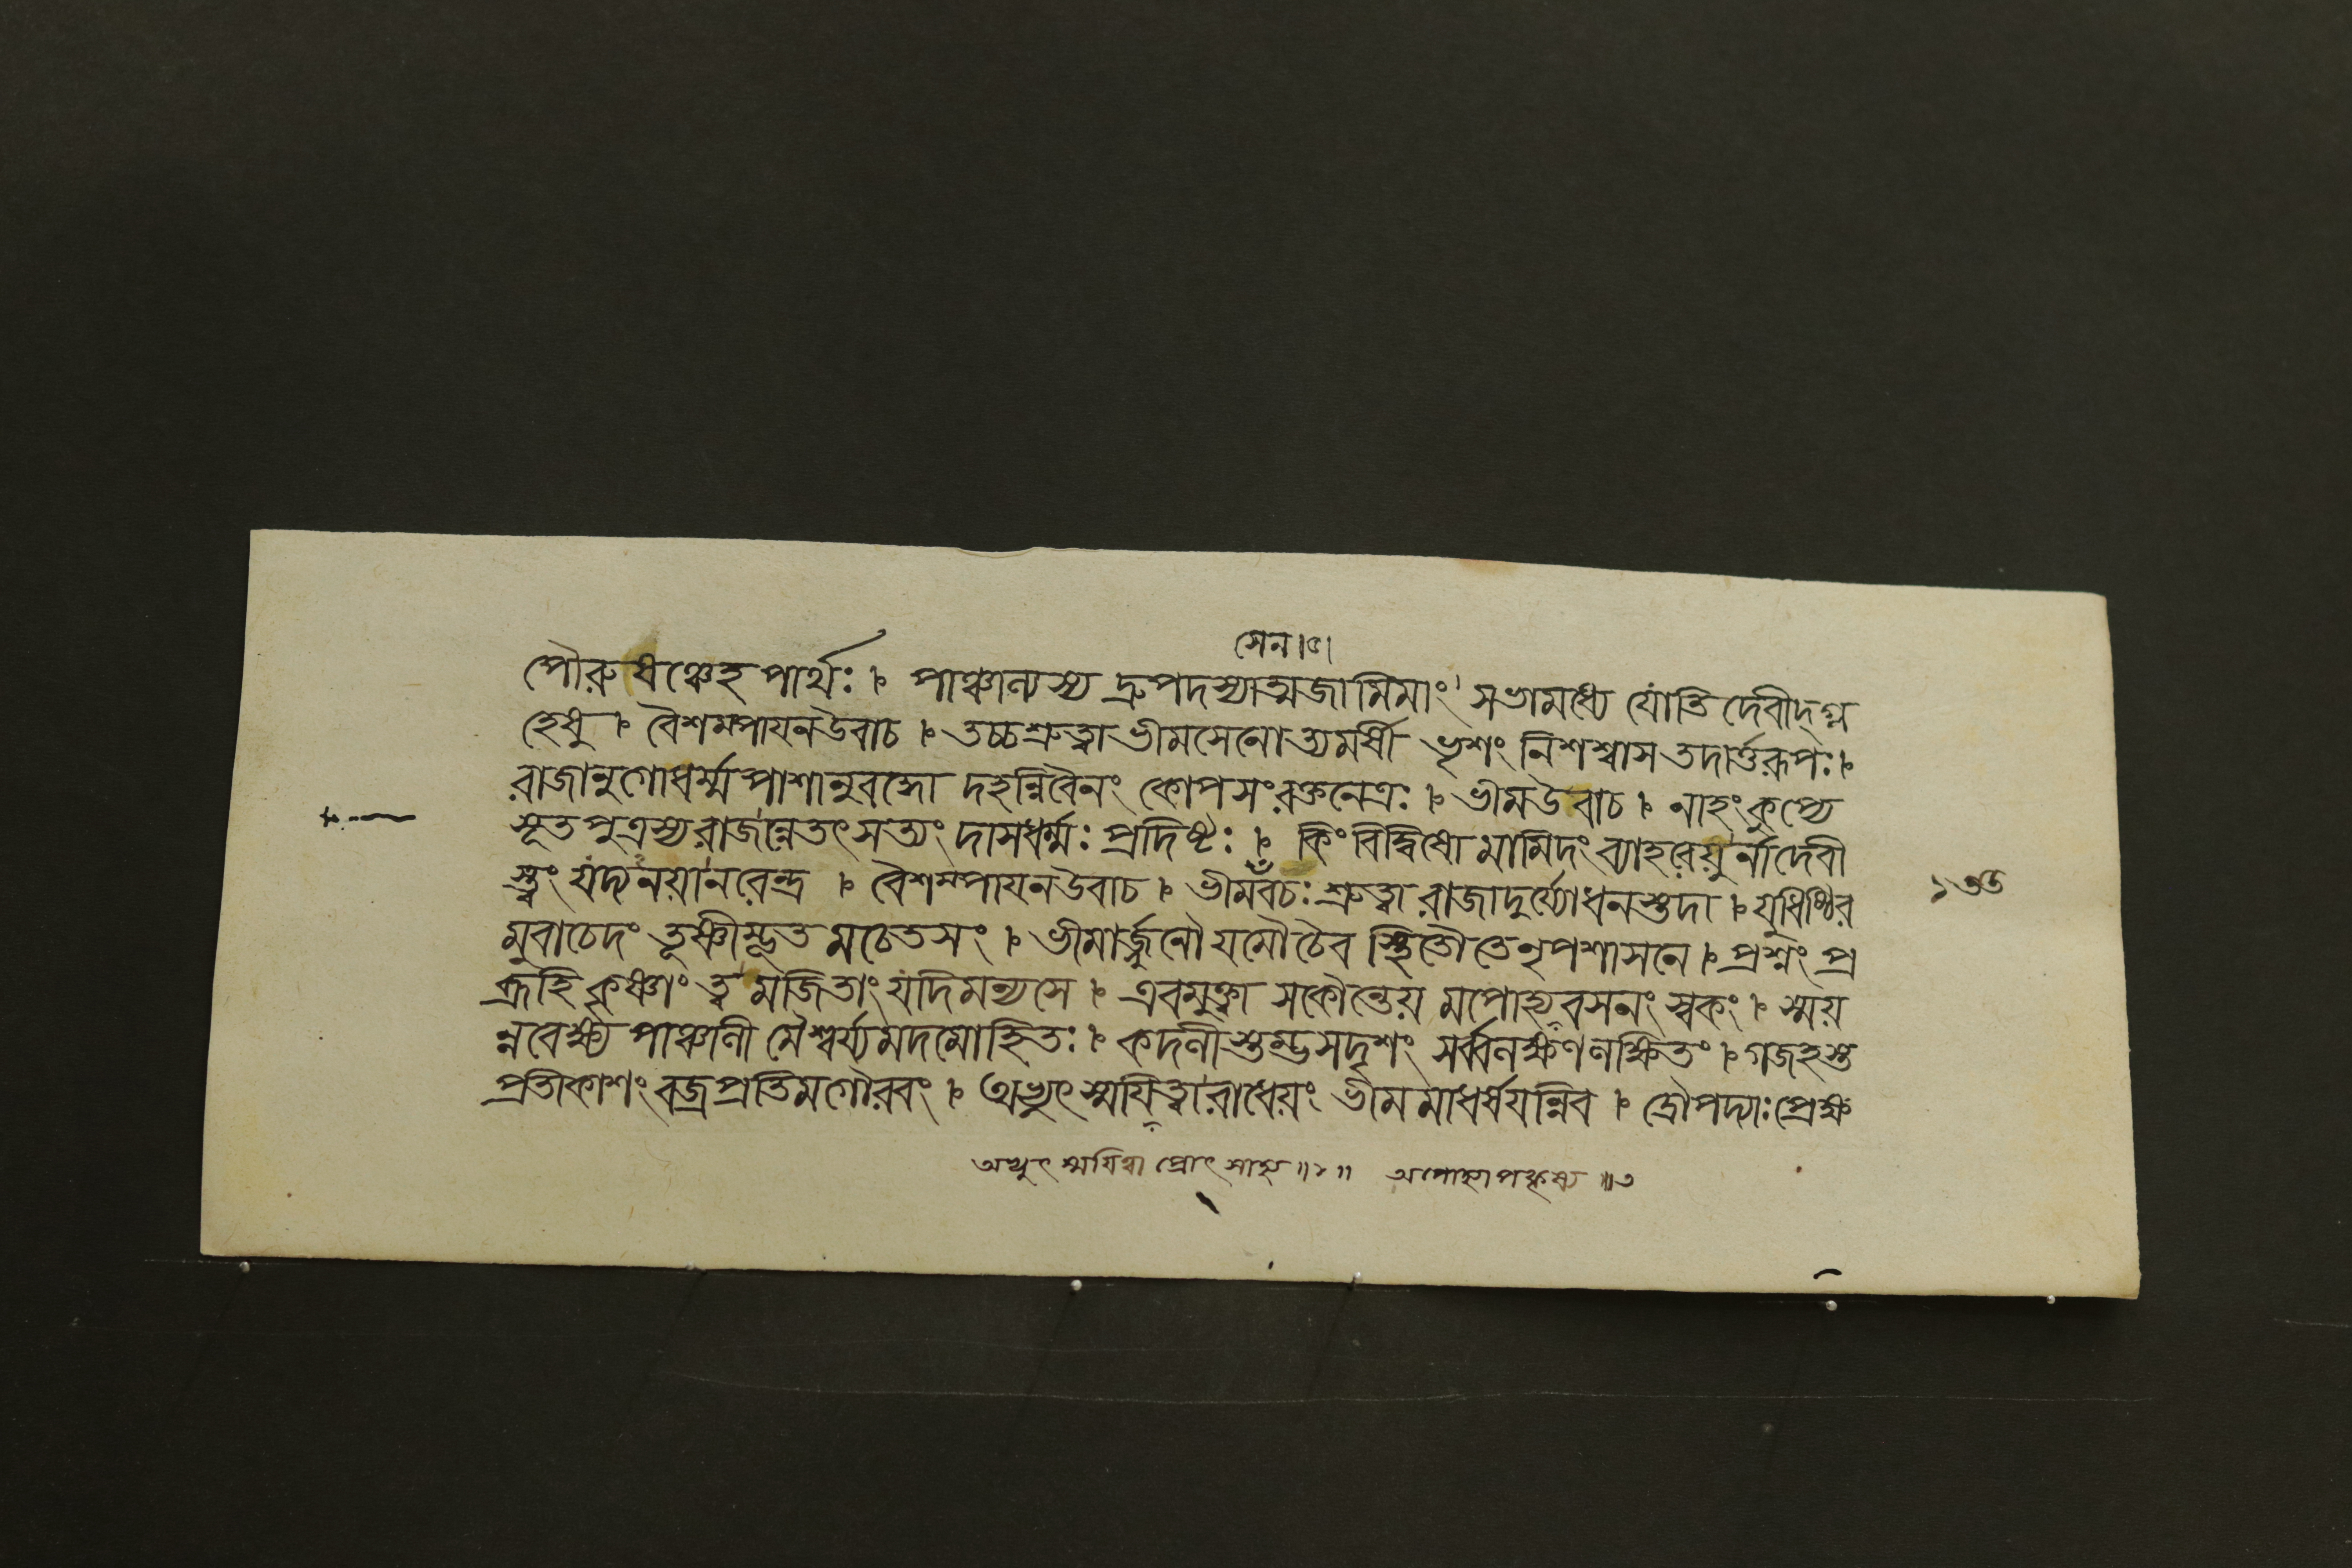 সেন।৫।
পৌরুষঞ্চেহপার্থঃ। পাঞ্চাল্যস্য দ্রুপদস্যাত্মজামিমাং সভামধ্যে যোতিদেবীদ্গ্ল
হেষু । বৈশম্পায়নউবাচ । তচ্চশ্রুত্বাভীমসেনোত্যমর্ষী ভৃশং নিশশ্বাসতদার্ত্তরূপঃ।
রাজানুগোধর্ম্মপাশানুবদ্ধো দহন্নিবৈনং কোপসংরক্তনেত্রঃ । ভীমউবাচ । নাহংকুপ্যে
সূতপুত্রস্যরাজন্নেতৎসত্যং দাসধর্ম্মঃ প্রদিষ্টঃ । কিংবিদ্বিষো মামিদংব্যাহরেয়ুর্নাদেবী
স্ত্বং যদ্যনয়ানরেন্দ্র । বৈশম্পায়নউবাচ । ভীমবচঃ শ্রুত্বা রাজাদুর্য্যোধনস্তদা । যুধিষ্ঠির
মুবাচেদং তূষ্ণীম্ভূতমচেতসং । ভীমার্জ্জুনৌ যমৌচৈব স্থিতৌতেনৃপশাসনে । প্রশ্নং প্র
ব্রূহিকৃষ্ণাং ত্বমজিতাং যদিমন্যসে । এবমুক্ত্বা সকৌন্তেয়মপোহ্যবসনং স্বকং । স্ময়
ন্নবেক্ষ্য পাঞ্চালী মৈশ্বর্য্যমদমোহিতঃ । কদলীশুণ্ডসদৃশং সর্ব্বলক্ষণলক্ষিতং । গজহস্ত
প্রতীকাশং বজ্রপ্রতিমগৌরবং । অভ্যুৎস্ময়িত্বারাধেয়ং ভীমমাধর্ষয়ন্নিব । দ্রৌপদ্যাঃপ্রেক্ষ
অভ্যুৎস্ময়িত্বা প্রোৎসাহ্য ॥২॥ অপোহ্যাপকৃষ্য ॥৩
১৩৩